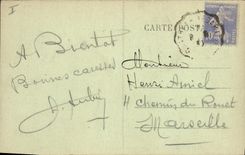 I
CARTE POSTALE
A Bientot
Bonnes caresses
Monsieur
Henri Amiel
11 Chemin du Rouet
Marseille